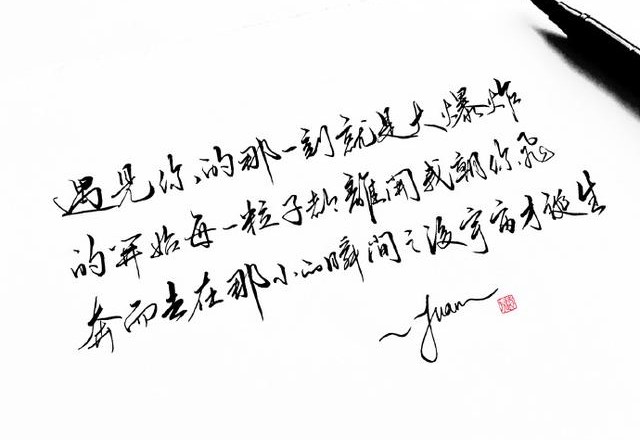 遇見你的那一刻就是大爆炸
的開始每一粒子都離開我朝你飛
奔而去在那小的瞬間之後宇宙才誕生
~Juan~